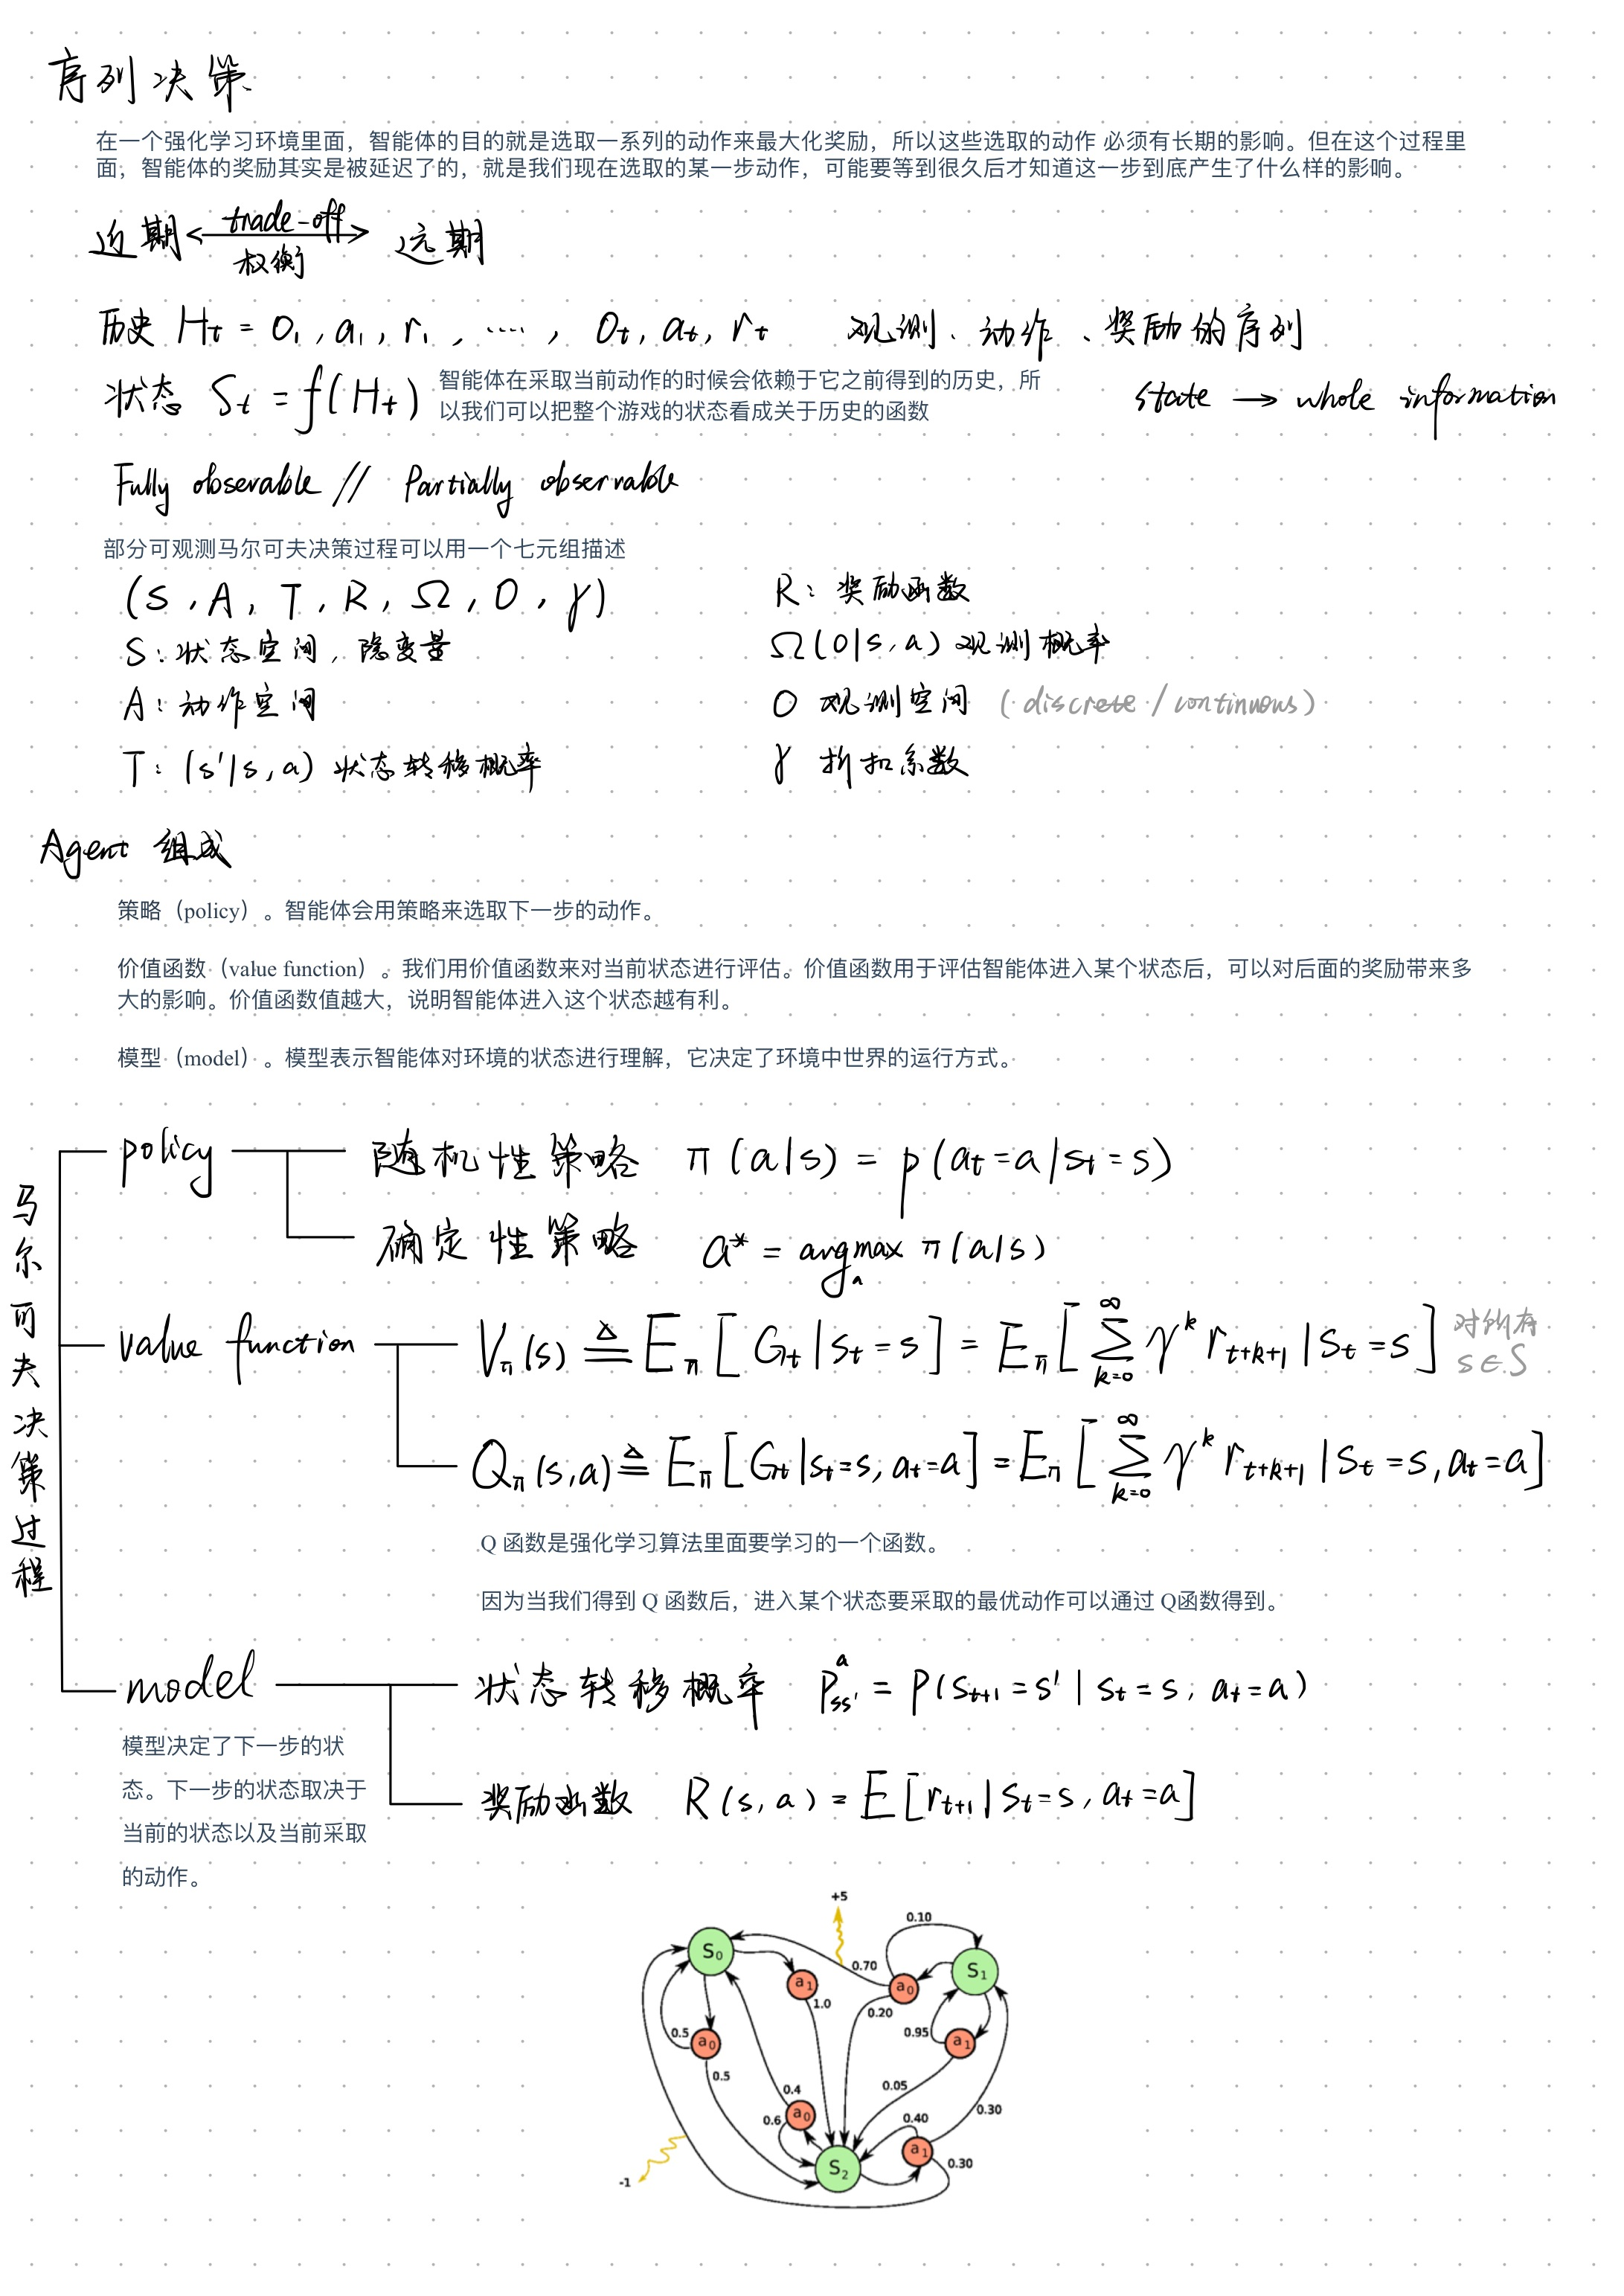 序列决策
在一个强化学习环境里面，智能体的目的就是选取一系列的动作来最大化奖励，所以这些选取的动作 必须有长期的影响。但在这个过程里
面，智能体的奖励其实是被延迟了的，就是我们现在选取的某一步动作，可能要等到很久后才知道这一步到底产生了什么样的影响。
近期 trade-off 权衡 远期
历史 Ht = o₁, a₁, r₁, ...., Ot, at, rt 观测、动作、奖励的序列
状态 St = f(Ht)
智能体在采取当前动作的时候会依赖于它之前得到的历史，所
以我们可以把整个游戏的状态看成关于历史的函数
state → whole information
Fully obserable // Partially observable
部分可观测马尔可夫决策过程可以用一个七元组描述
(S, A, T, R, Ω, O, γ)
S：状态空间，隐变量
A：动作空间
T：(s'|s, a) 状态转移概率
R：奖励函数
Ω(o|s, a) 观测概率
O 观测空间 (discrete / continuous)
γ 折扣系数
Agent 组成
策略（policy）。智能体会用策略来选取下一步的动作。
价值函数（value function）。我们用价值函数来对当前状态进行评估。价值函数用于评估智能体进入某个状态后，可以对后面的奖励带来多
大的影响。价值函数值越大，说明智能体进入这个状态越有利。
模型（model）。模型表示智能体对环境的状态进行理解，它决定了环境中世界的运行方式。
马尔可夫决策过程
policy
随机性策略 π(a|s) = p(at=a|st=s)
确定性策略 a* = argmax a π(a|s)
value function
Vπ(s) ≜ Eπ[Gt|st=s] = Eπ[∑ k=0 ∞ γ^k r t+k+1 |st=s] 对所有 s∈S
Qπ(s,a) ≜ Eπ[Gt|st=s, at=a] = Eπ[∑ k=0 ∞ γ^k r t+k+1 |st=s, at=a]
Q 函数是强化学习算法里面要学习的一个函数。
因为当我们得到 Q 函数后，进入某个状态要采取的最优动作可以通过 Q函数得到。
model
模型决定了下一步的状
态。下一步的状态取决于
当前的状态以及当前采取
的动作。
状态转移概率 P^a ss' = P(st+1=s' | st=s, at=a)
奖励函数 R(s, a) = E[rt+1|st=s, at=a]
+5
0.10
S₀
S₁
0.70
a₁
a₀
1.0
0.20
0.5
a₀
0.95
a₁
0.5
0.4
0.05
0.6
a₀
0.40
0.30
S₂
a₁
0.30
-1